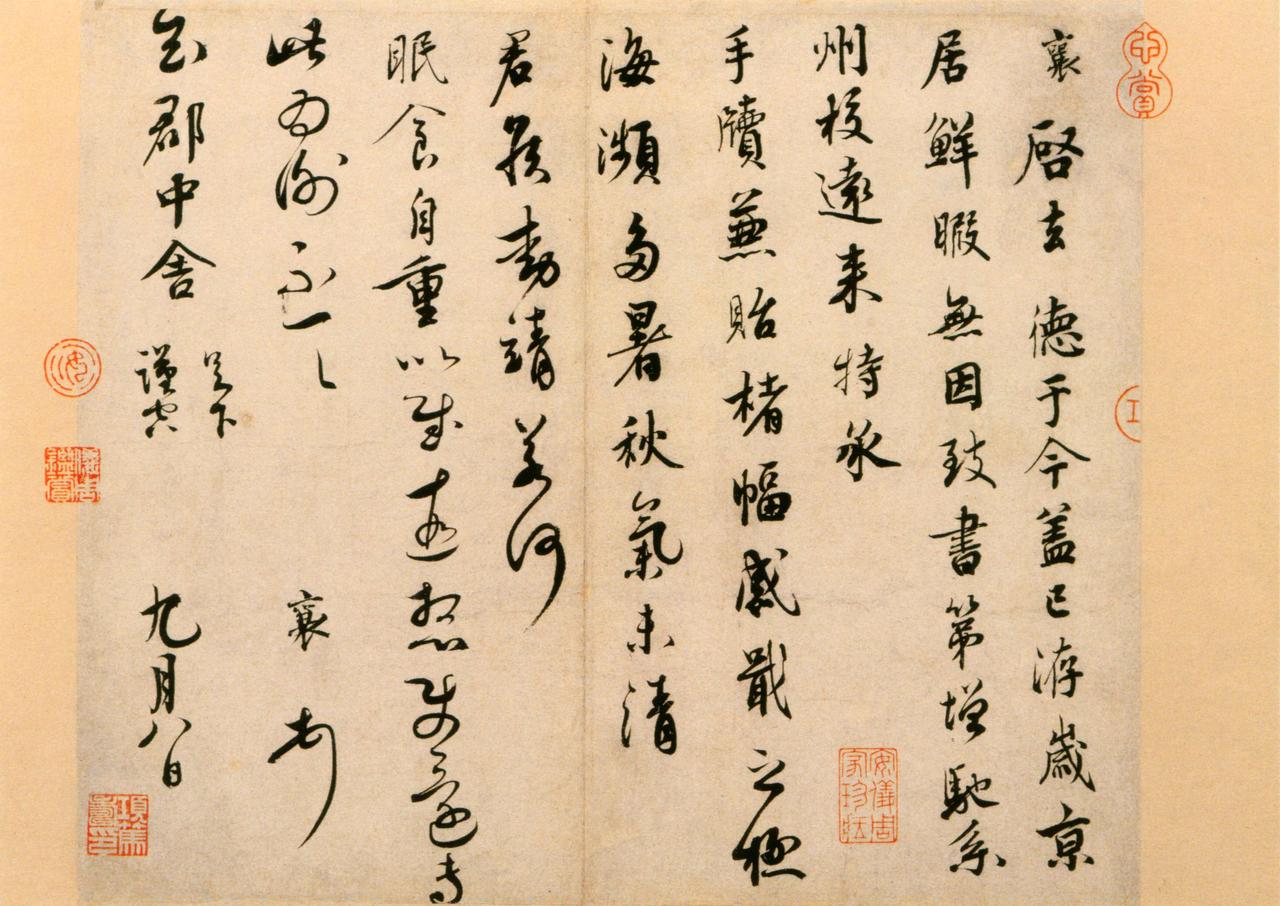 襄啓去德于今盖已洊歲京
居鮮暇無因致書第增馳系
州校遠来特承
手牘兼貽楮幅感戢之極
海瀕多暑秋氣未清
君侯動靖若何
眠食自重以慰遠想時還專
此為謝不一一
襄頓首
知郡中舍足下
謹空
九月八日
安儀周家珍藏